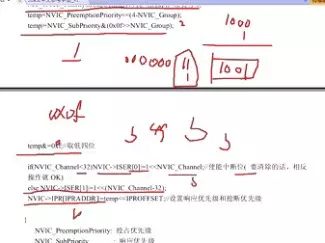 temp=NVIC_PreemptionPriority<<(4-NVIC_Group);
temp=NVIC_SubPriority&(0x0f>>NVIC_Group);
2
1000
1
1
000000
11
1001
0x0f
temp&=0xf;//取低四位
if(NVIC_Channel<32)NVIC->ISER[0]=1<<NVIC_Channel;//使能中断位(要清除的话，相反
操作就OK)
else NVIC->ISER[1]=1<<(NVIC_Channel-32);
NVIC->IPR[IPRADDR]=temp<<IPROFFSET;//设置响应优先级和抢断优先级
}
NVIC_PreemptionPriority: 抢占优先级
NVIC_SubPriority : 响应优先级